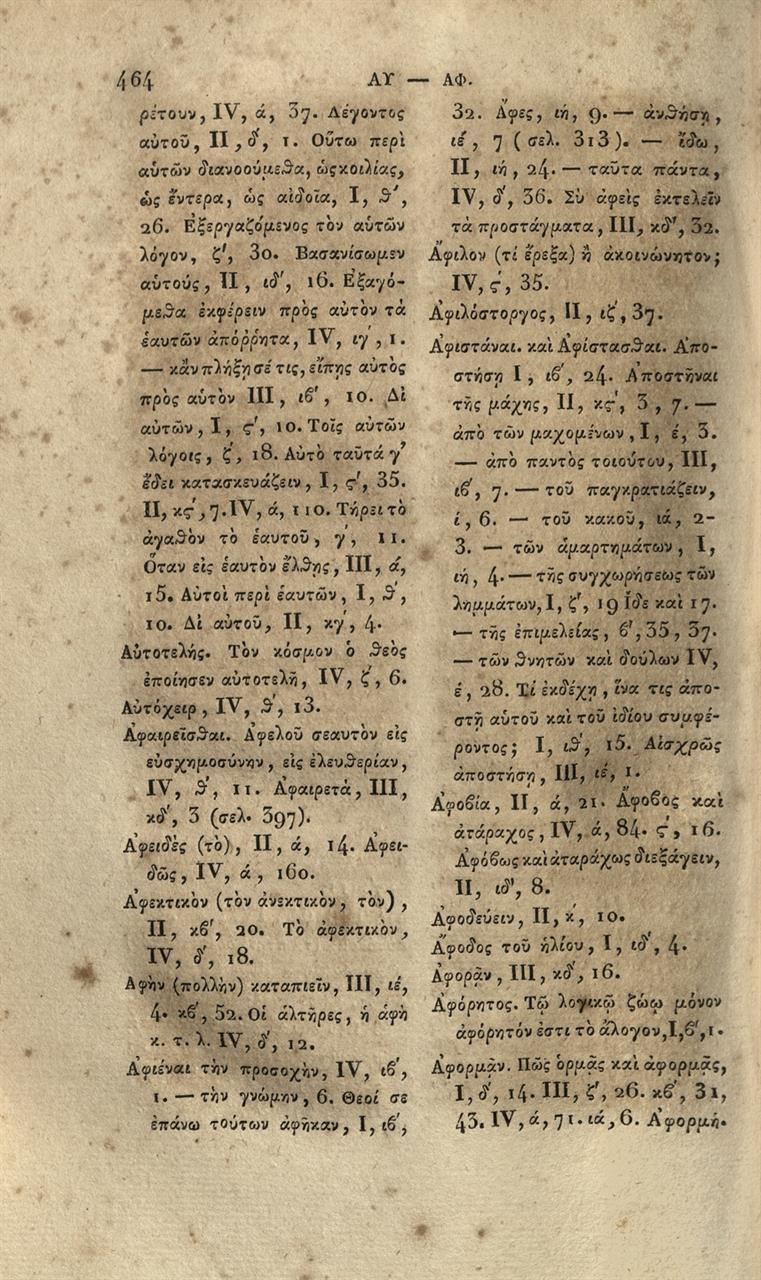 464 ΑΥ — ΑΦ.
ρέτουν, IV, ά, 37. Λέγοντος
αὐτοῦ, II, δ', 1. Οὕτω περὶ
αὑτῶν διανοούμεθα, ὡς κοιλίας,
ὡς ἔντερα, ὡς αἰδοῖα, I, θ',
26. Ἐξεργαζόμενος τὸν αὑτῶν
λόγον, ζ', 30. Βασανίσωμεν
αὑτούς, II, ιδ', 16. Ἐξαγό-
μεθα ἐκφέρειν πρὸς αὐτὸν τὰ
ἑαυτῶν ἀπόῤῥητα, IV, ιγ', 1.
— κἂν πλήξῃ σέ τις, εἴπῃς αὐτὸς
πρὸς αὑτὸν III, ιϐ', 10. Δὶ
αὑτῶν, I, ϛ', 10. Τοῖς αὑτῶν
λόγοις, ζ', 18. Αὐτὸ ταῦτά γ'
ἔδει κατασκευάζειν, I, ϛ', 35.
II, κϛ', 7. IV, ά, 110. Τήρει τὸ
ἀγαθὸν τὸ ἑαυτοῦ, γ', 11.
Ὅταν εἰς ἑαυτὸν ἔλθῃς, III, ά,
15. Αὐτοὶ περὶ ἑαυτῶν, I, θ',
10. Δὶ αὑτοῦ, II, κγ', 4.
Αὐτοτελής. Τὸν κόσμον ὁ θεὸς
ἐποίησεν αὐτοτελῆ, IV, ζ', 6.
Αὐτόχειρ, IV, θ', 13.
Ἀφαιρεῖσθαι. Ἀφελοῦ σεαυτὸν εἰς
εὐσχημοσύνην, εἰς ἐλευθερίαν,
IV, θ', 11. Ἀφαιρετὰ, III,
κδ', 3 (σελ. 397).
Ἀφειδὲς (τὸ), II, ά, 14. Ἀφει-
δῶς, IV, ά, 160.
Ἀφεκτικὸν (τὸν ἀνεκτικὸν, τὸν),
II, κϐ', 20. Τὸ ἀφεκτικὸν,
IV, δ', 18.
Ἀφὴν (πολλὴν) καταπιεῖν, III, ιέ,
4. κϐ', 52. Οἱ ἁλτῆρες, ἡ ἁφὴ
κ. τ. λ. IV, δ', 12.
Ἀφιέναι τὴν προσοχὴν, IV, ιϐ',
1. — τὴν γνώμην, 6. Θεοί σε
ἐπάνω τούτων ἀφῆκαν, I, ιϐ',
32. Ἄφες, ιή, 9. — ἀνθήσῃ,
ιέ, 7 (σελ. 313). — ἴδω,
II, ιή, 24. — ταῦτα πάντα,
IV, δ', 36. Σὺ ἀφεὶς ἐκτελεῖν
τὰ προστάγματα, III, κδ', 32.
Ἄφιλον (τί ἔρεξα) ἢ ἀκοινώνητον;
IV, ϛ', 35.
Ἀφιλόστοργος, II, ιζ', 37.
Ἀφιστάναι. καὶ Ἀφίστασθαι. Ἀπο-
στήσῃ I, ιϐ', 24. Ἀποστῆναι
τῆς μάχης, II, κϛ', 3, 7. —
ἀπὸ τῶν μαχομένων, I, έ, 3.
— ἀπὸ παντὸς τοιούτου, III,
ιϐ', 7. — τοῦ παγκρατιάζειν,
ί, 6. — τοῦ κακοῦ, ιά, 2-
3. — τῶν ἁμαρτημάτων, I,
ιή, 4. — τῆς συγχωρήσεως τῶν
λημμάτων, I, ζ', 19 ἴδε καὶ 17.
— τῆς ἐπιμελείας, ϐ', 35, 37.
— τῶν θνητῶν καὶ δούλων IV,
έ, 28. Τί ἐκδέχῃ, ἵνα τις ἀπο-
στῇ αὑτοῦ καὶ τοῦ ἰδίου συμφέ-
ροντος; I, ιθ', 15. Αἰσχρῶς
ἀποστήσῃ, III, ιέ, 1.
Ἀφοϐία, II, ά, 21. Ἄφοϐος καὶ
ἀτάραχος, IV, ά, 84. ϛ', 16.
Ἀφόϐως καὶ ἀταράχως διεξάγειν,
II, ιδ', 8.
Ἀφοδεύειν, II, κ', 10.
Ἄφοδος τοῦ ἡλίου, I, ιδ', 4.
Ἀφορᾷν, III, κδ', 16.
Ἀφόρητος. Τῷ λογικῷ ζώῳ μόνον
ἀφόρητόν ἐστι τὸ ἄλογον, I, ϐ', 1.
Ἀφορμᾷν. Πῶς ὁρμᾷς καὶ ἀφορμᾷς,
I, δ', 14. III, ζ', 26. κϐ', 31,
43. IV, ά, 71. ιά, 6. Ἀφορμή.